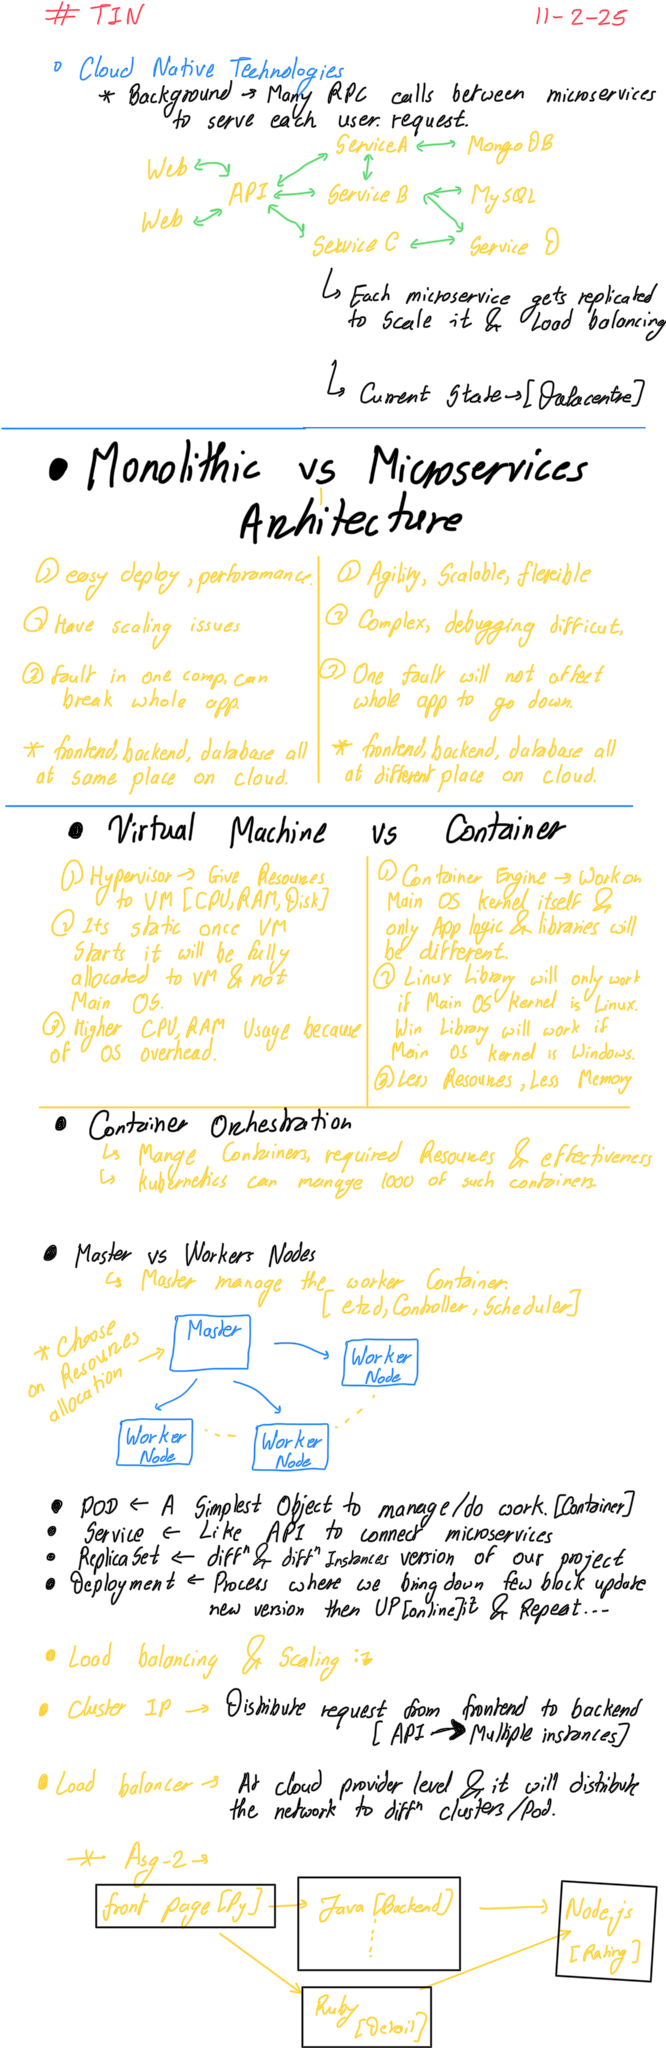 # TIN 11-2-25
Cloud Native Technologies
* Background → Many RPC calls between microservices
to serve each user request.
Service A ↔ MongoDB
Web
API Service B MySQL
Web
Service C ↔ Service D
↳ Each microservice gets replicated
to Scale it & Load balancing
↳ Current State → [Datacentre]
• Monolithic vs Microservices
Architecture
① easy deploy, performance.
② Have scaling issues
③ fault in one comp. can
break whole app.
* frontend, backend, database all
at same place on cloud.
① Agility, Scalable, flexible
② Complex, debugging difficut,
③ One fault will not affect
whole app to go down.
* frontend, backend, database all
at different place on cloud.
• Virtual Machine vs Container
① Hypervisor → Give Resources
to VM [CPU, RAM, Disk]
② Its static once VM
Starts it will be fully
allocated to VM & not
Main OS.
③ Higher CPU, RAM Usage because
of OS overhead.
① Container Engine → Work on
Main OS kernel itself &
only App logic & libraries will
be different.
② Linux Library will only work
if Main OS kernel is Linux.
Win Library will work if
Main OS kernel is Windows.
③ Less Resources, Less Memory
• Container Orchestration
↳ Mange Containers, required Resources & effectiveness
↳ kubernetics can manage 1000 of such containers
• Master vs Workers Nodes
↳ Master manage the worker Container.
[etcd, Controller, Scheduler]
* Choose
on Resources
allocation
Master
Worker
Node
Worker
Node
Worker
Node
• POD ← A Simplest Object to manage/do work. [Container]
• Service ← Like API to connect microservices
• ReplicaSet ← diffⁿ & diffⁿ Instances version of our project
• Deployment ← Process where we bring down few block update
new version then UP [online] it & Repeat...
• Load balancing & Scaling :-
• Cluster IP → Distribute request from frontend to backend
[API → Multiple instances]
• Load balancer → At cloud provider level & it will distribute
the network to diffⁿ clusters/Pod.
* Asg-2 →
front page [Py] → Java [Backend] → Node.js
[Rating]
Ruby
[Detail]